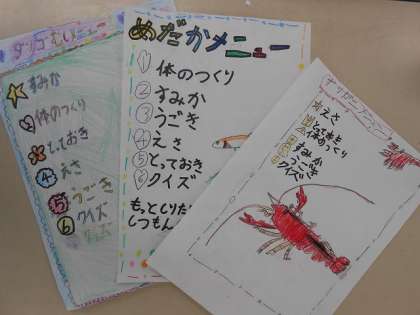 ダンゴむしメニュー
すみか
② 体のつくり
とっておき
④ えさ
⑤ うごき
⑥ クイズ
めだかメニュー
① 体のつくり
② すみか
③ うごき
④ えさ
⑤ とっておき
⑥ クイズ
もっとしりた
しつもん
ザリガニメニュー
えさ
とっておき
体のつくり
すみか
うごき
クイズ